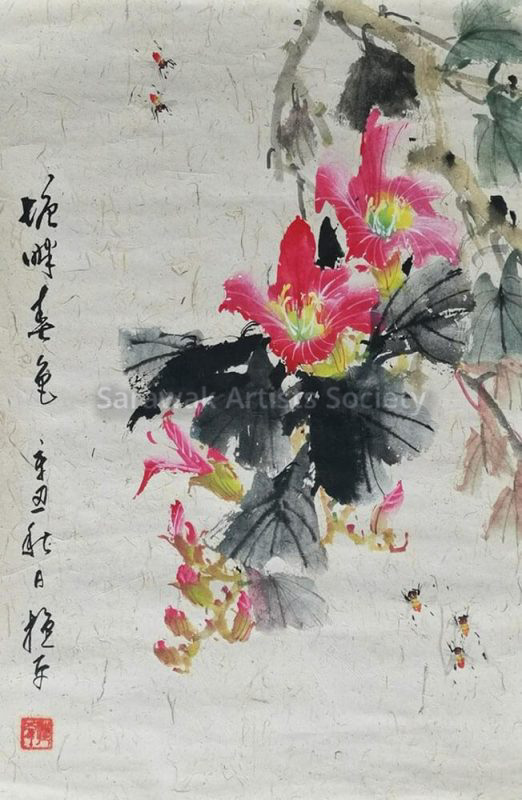 塘畔春色 辛丑秋日
Sarawak Artists Society